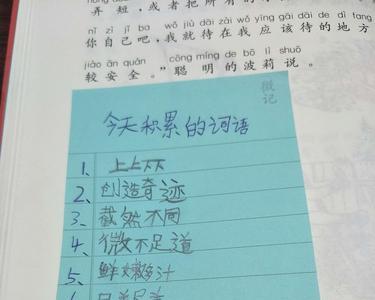 弄短,或者把所有的
nǐ zì jǐ ba wǒ jiù dāi zài wǒ yīng gāi dāi de dì fang
你自己吧,我就待在我应该待的地方
jiào ān quán cōng míng de bō lì shuō
较安全。”聪明的波莉说。
今天积累的词语
1、上上
2、创造奇迹
3、截然不同
4、微不足道
5、鲜嫩 汁